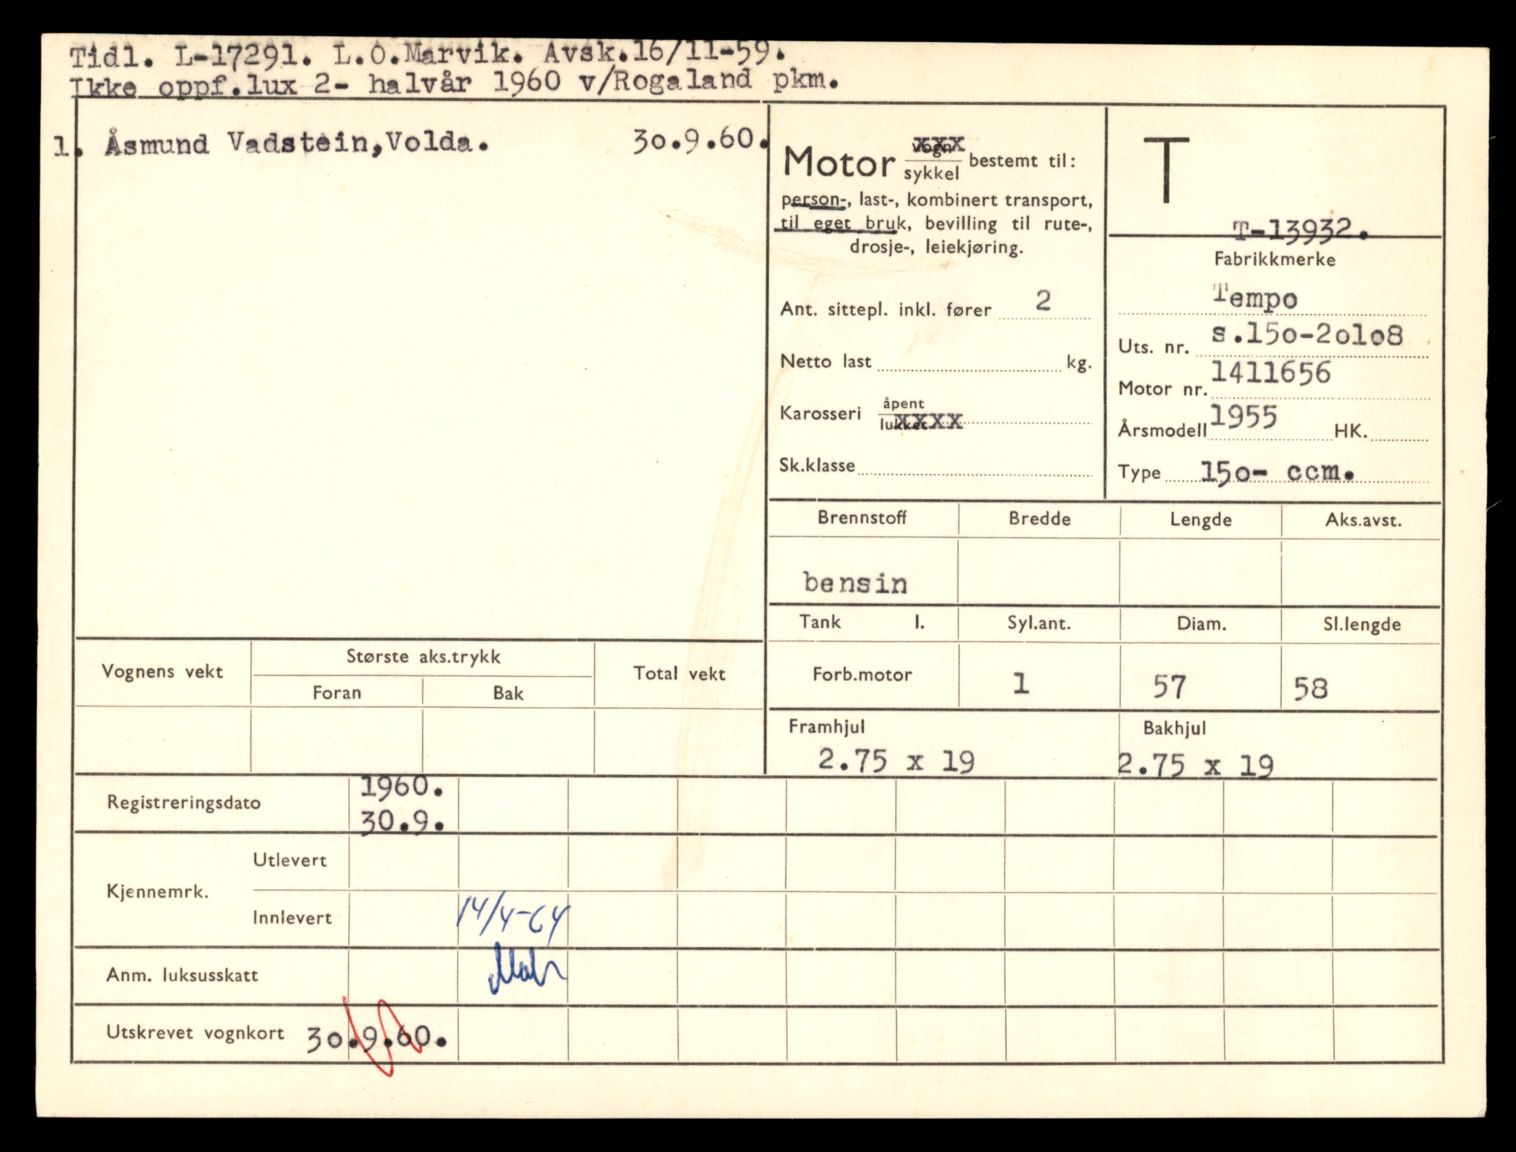 Tidl. L-17291. L.O.Marvik. Avsk.16/11-59.
Ikke oppf.lux 2- halvår 1960 v/Rogaland pkm.
1. Åsmund Vadstein,Volda. 30.9.60.
Motor vogn xxx
sykkel bestemt til:
person-, last-, kombinert transport,
til eget bruk, bevilling til rute-,
drosje-, leiekjøring.
Ant. sittepl. inkl. fører 2
Netto last kg.
Karosseri åpent
lukket xxxx
Sk.klasse
T
T-13932.
Fabrikkmerke
Tempo
Uts. nr. s.15o-2o1o8
Motor nr. 1411656
Årsmodell 1955 HK.
Type 15o- ccm.
Brennstoff Bredde Lengde Aks.avst.
bensin
Tank l. Syl.ant. Diam. Sl.lengde
Forb.motor 1 57 58
Framhjul Bakhjul
2.75 x 19 2.75 x 19
Vognens vekt Største aks.trykk Total vekt
Foran Bak
Registreringsdato 1960.
30.9.
Kjennemrk. Utlevert
Innlevert 14/4-64
Anm. luksusskatt
Utskrevet vognkort 3o.9.60.